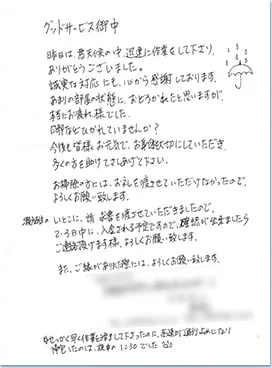 グッドサービス御中
昨日は、悪天候の中、迅速に作業をして下さり、
ありがとうございました。
誠実な対応にも、心から感謝しております。
あまりの部屋の状態に、おどろかれたと思いますが、
本当にお疲れ様でした。
風邪などひかれていませんか?
今後も皆様お元気で、お身体大切にしていただき、
多くの方を助けてさしあげて下さい。
お掃除の方には、お礼を渡させていただけなかったので、
よろしくお願い致します。
いとこに、請求書を渡させていただきましたので、
2、3日中に、入金される予定ですので、確認が出来ましたら
ご連絡頂けます様、よろしくお願い致します。
また、ご縁がありました際には、よろしくお願い致します。
せっかく早く作業を済まして下さったのに、高速が通行止めになり
帰宅したのは、夜中の1:30でした